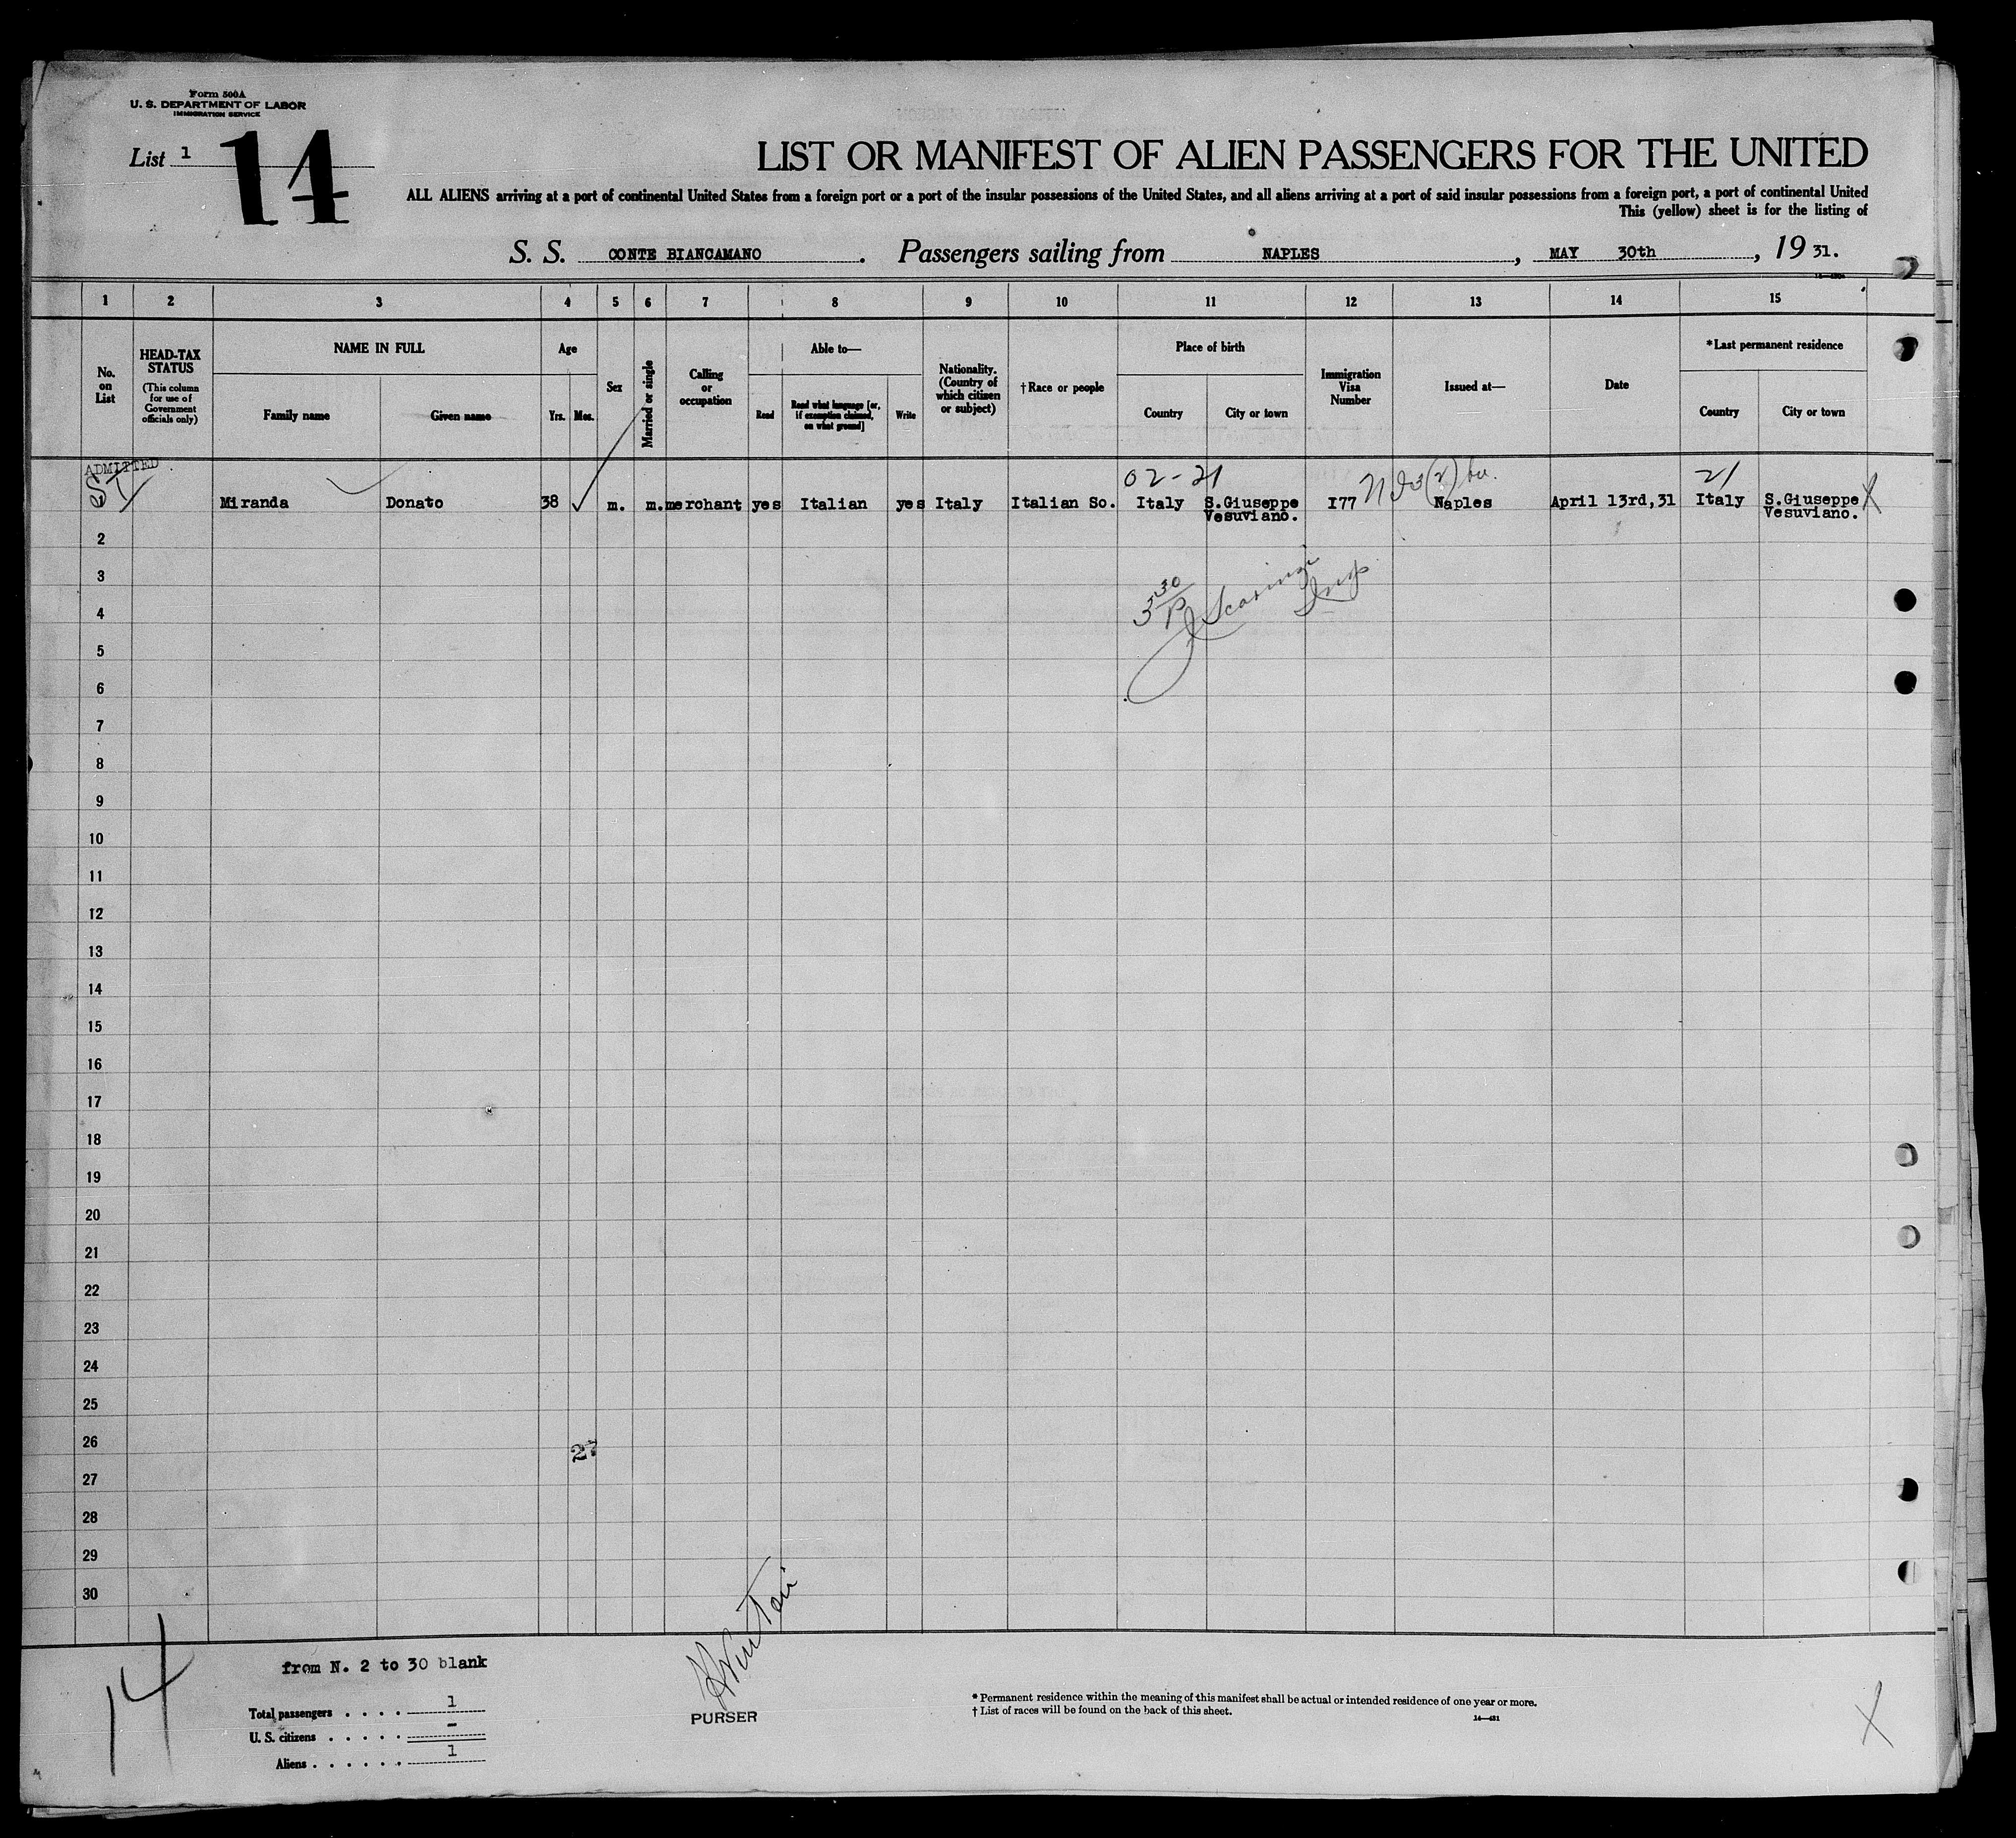 Form 500A
U. S. DEPARTMENT OF LABOR
IMMIGRATION SERVICE
List 1
14
LIST OR MANIFEST OF ALIEN PASSENGERS FOR THE UNITED
ALL ALIENS arriving at a port of continental United States from a foreign port or a port of the insular possessions of the United States, and all aliens arriving at a port of said insular possessions from a foreign port, a port of continental United
This (yellow) sheet is for the listing of
S. S. CONTE BIANCAMANO. Passengers sailing from NAPLES, MAY 30th, 19 31.
1 2 3 4 5 6 7 8 9 10 11 12 13 14 15
No. on List
HEAD-TAX STATUS
(This column for use of Government officials only)
NAME IN FULL
Family name
Given name
Age
Yrs. Mos.
Sex
Married or single
Calling or occupation
Able to—
Read
Read what language [or, if exemption claimed, on what ground]
Write
Nationality. (Country of which citizen or subject)
†Race or people
Place of birth
Country
City or town
Immigration Visa Number
Issued at—
Date
*Last permanent residence
Country
City or town
ADMITTED
02-21
21
Miranda Donato 38 m. m. merchant yes Italian yes Italy Italian So. Italy S.Giuseppe I77 Naples April 13rd,31 Italy S.Giuseppe X
Vesuviano. Vesuviano.
2
3
5 30 P Insp
4
5
6
7
8
9
10
11
12
13
14
15
16
17
18
19
20
21
22
23
24
25
26
27
27
28
29
30
14
from N. 2 to 30 blank
Total passengers . . . . 1
U. S. citizens . . . . . -
Aliens . . . . . . 1
PURSER
* Permanent residence within the meaning of this manifest shall be actual or intended residence of one year or more.
† List of races will be found on the back of this sheet.
14—431
X